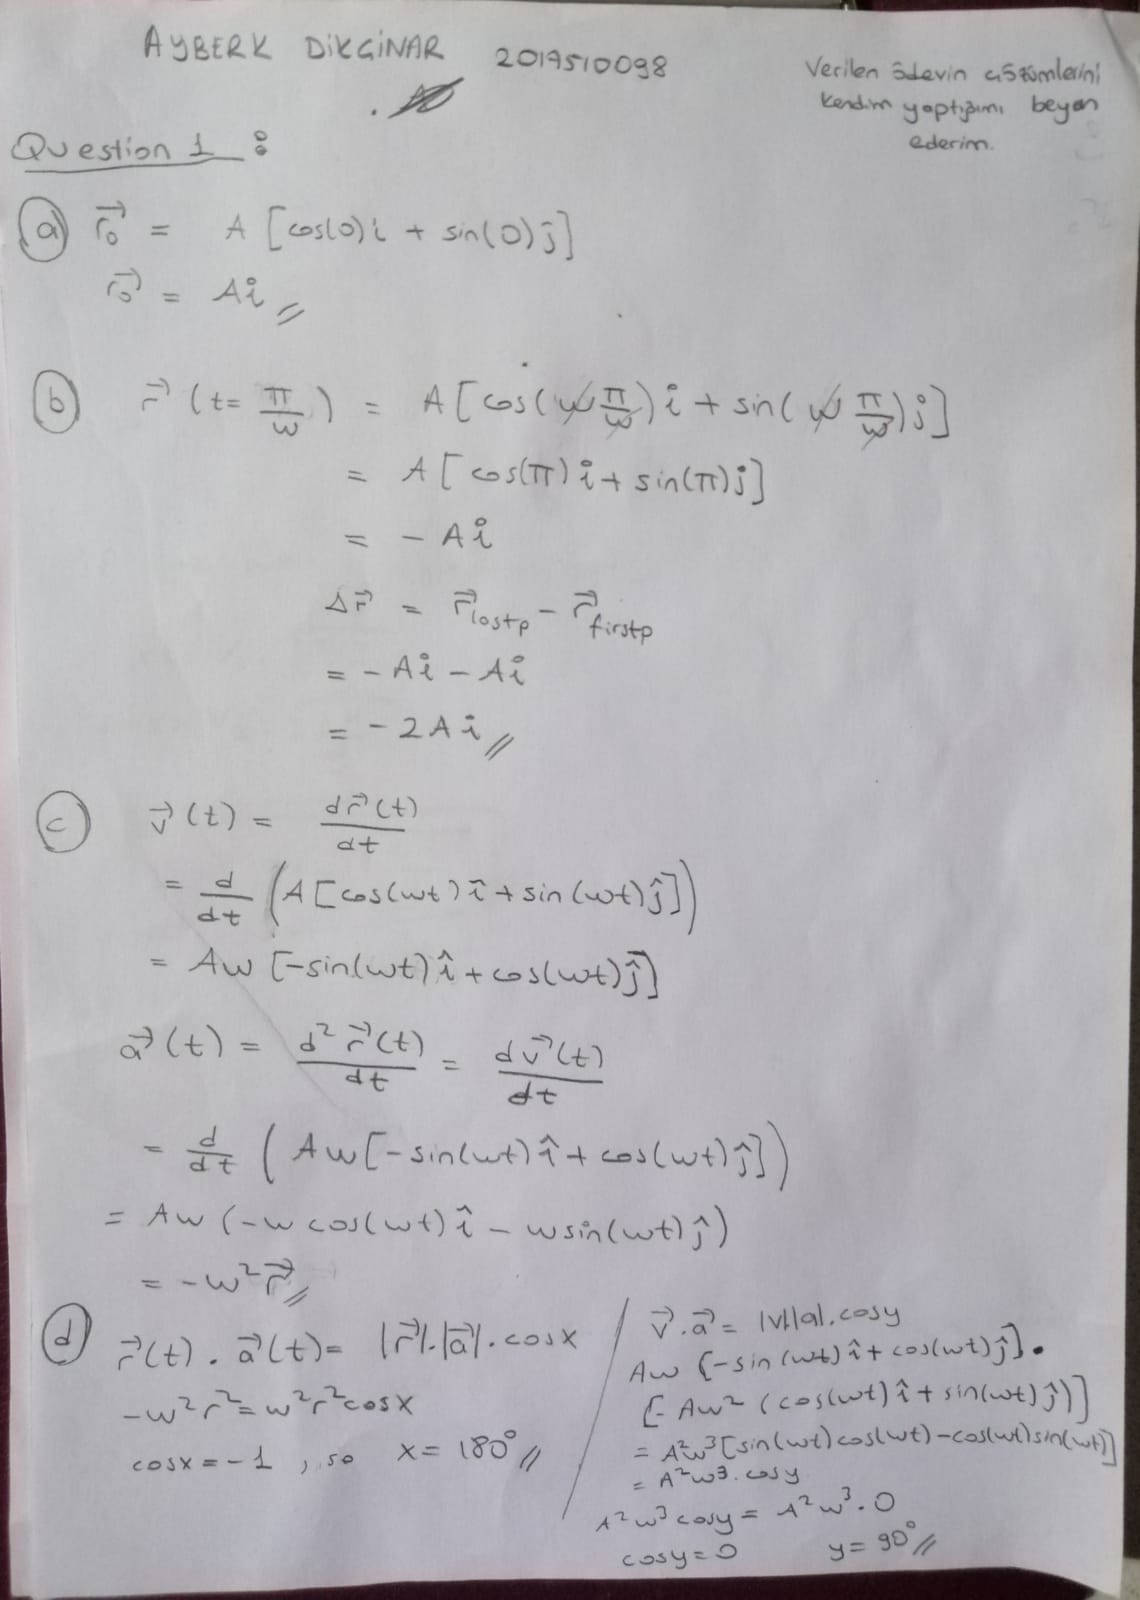 AYBERK DİKGİNAR 2017510098
Verilen ödevin çözümlerini
kendim yaptığımı beyan
ederim.
Question 1 :
a) r⃗₀ = A [cos(0) i + sin(0) ĵ]
r⃗₀ = A i //
b) r⃗ (t = π/w) = A [cos(w π/w) i + sin(w π/w) j]
= A [cos(π) i + sin(π) j]
= - A i
Δr⃗ = r⃗lastp - r⃗firstp
= - A i - A i
= - 2 A i //
c) v⃗ (t) = dr⃗(t)/dt
= d/dt (A [cos(wt) î + sin(wt) ĵ])
= Aw [-sin(wt) î + cos(wt) ĵ]
a⃗ (t) = d² r⃗(t)/dt = dv⃗(t)/dt
= d/dt (Aw [-sin(wt) î + cos(wt) ĵ])
= Aw (-w cos(wt) î - w sin(wt) ĵ)
= - w² r⃗ //
d) r⃗(t) . a⃗(t) = |r⃗|.|a⃗| . cosx
-w² r² = w² r² cosx
cosx = -1 , so x = 180° //
v⃗ . a⃗ = |v||a|. cosy
Aw [-sin(wt) î + cos(wt) ĵ] .
[- Aw² (cos(wt) î + sin(wt) ĵ)]
= A²w³ [sin(wt) cos(wt) - cos(wt) sin(wt)]
= A²w³. cosy
A²w³ cosy = A²w³ . 0
cosy = 0 y = 90° //